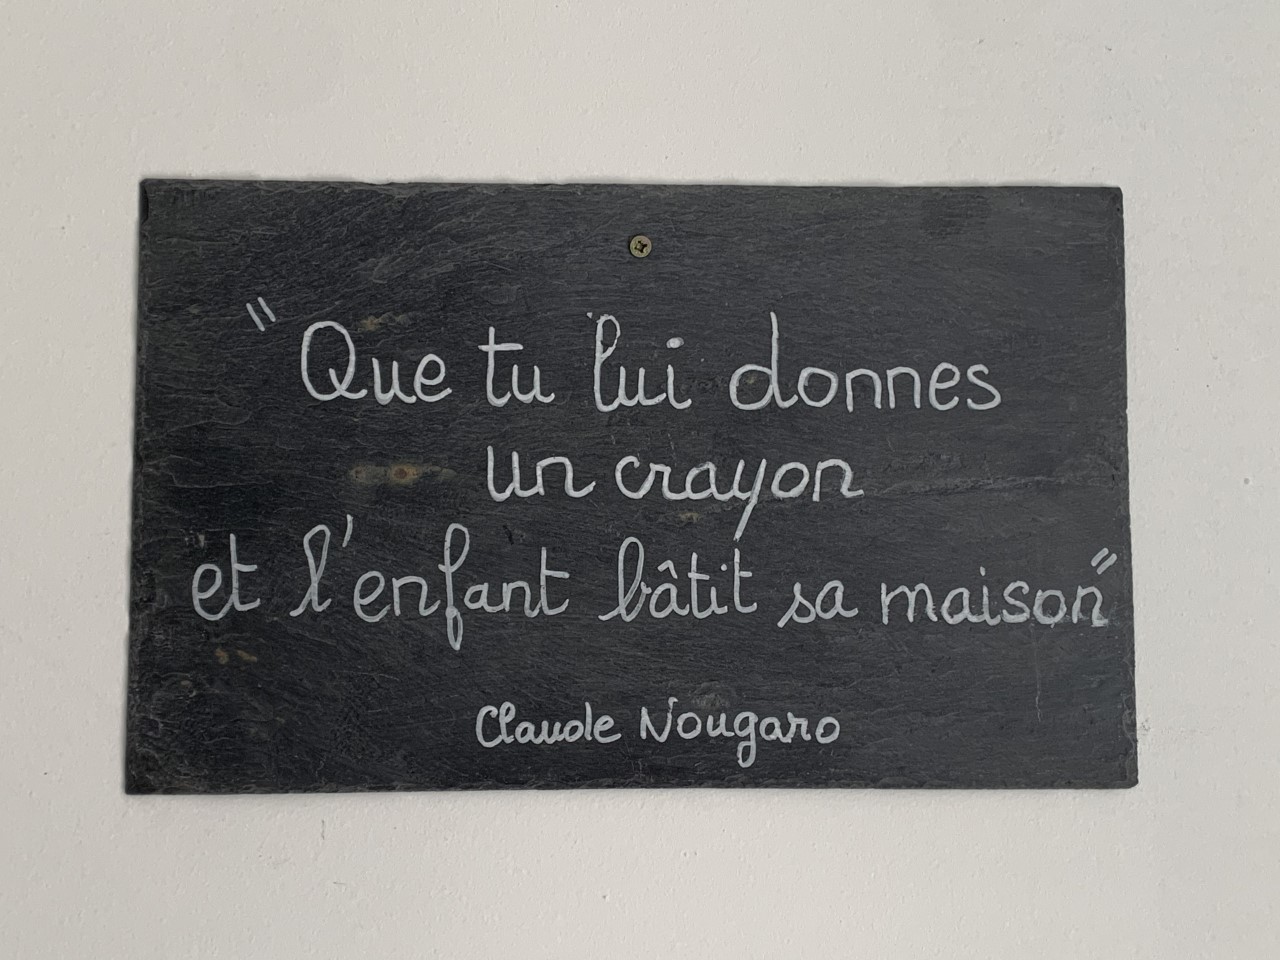 "Que tu lui donnes
un crayon
et l'enfant bâtit sa maison"
Claude Nougaro